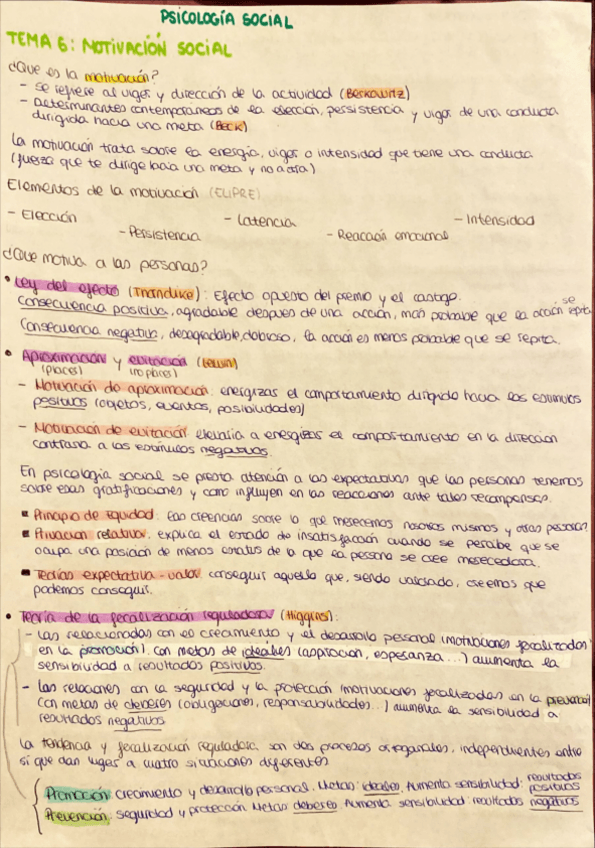 PSICOLOGÍA SOCIAL
TEMA 6: MOTIVACIÓN SOCIAL
¿Que es la motivación?
- se refiere al vigor y dirección de la actividad (Berkowitz)
- determinantes contemporáneos de la elección, persistencia y vigor de una conducta
dirigida hacia una meta (Beck)
La motivación trata sobre la energía, vigor o intensidad que tiene una conducta
(fuerza que te dirige hacia una meta y no otra)
Elementos de la motivación (ELIPRE)
- Elección
- Persistencia
- Latencia
- Reacción emocional
- Intensidad
¿Que motiva a las personas?
• Ley del efecto (Thorndike): Efecto opuesto del premio y el castigo.
consecuencia positiva, agradable después de una acción, más probable que la acción se repita
Consecuencia negativa, desagradable, doloroso, la acción es menos probable que se repita.
• Aproximación y evitación (Lewin)
(placer) (no placer)
- Motivación de aproximación: energizas el comportamiento dirigido hacia los estímulos
positivos (objetos, eventos, posibilidades)
- Motivación de evitación: llevaría a energizar el comportamiento en la dirección
contraria a los estímulos negativos.
En psicología social se presta atención a las expectativas que las personas tenemos
sobre esas gratificaciones y como influyen en las reacciones ante tales recompensas.
▪ Principio de equidad: las creencias sobre lo que merecemos nosotros mismos y otras personas
▪ Privación relativa: explica el estado de insatisfacción cuando se percibe que se
ocupa una posición de menos estatus de la que la persona se cree merecedora.
▪ Teorías expectativa-valor: conseguir aquello que, siendo valorado, creemos que
podemos conseguir.
• Teoría de la focalización reguladora (Higgins):
- Las relacionadas con el crecimiento y el desarrollo personal (motivaciones focalizadas
en la promoción), con metas de ideales (aspiración, esperanza...) aumenta la
sensibilidad a resultados positivos.
- Las relaciones con la seguridad y la protección (motivaciones focalizadas en la prevención)
con metas de deberes (obligaciones, responsabilidades...) aumenta la sensibilidad a
resultados negativos
La tendencia y focalización reguladora son dos procesos ortogonales, independientes entre
sí que dan lugar a cuatro situaciones diferentes
Promoción: crecimiento y desarrollo personal. Metas: ideales. Aumenta sensibilidad: resultados positivos
Prevención: seguridad y protección Metas: deberes Aumenta sensibilidad: resultados negativos